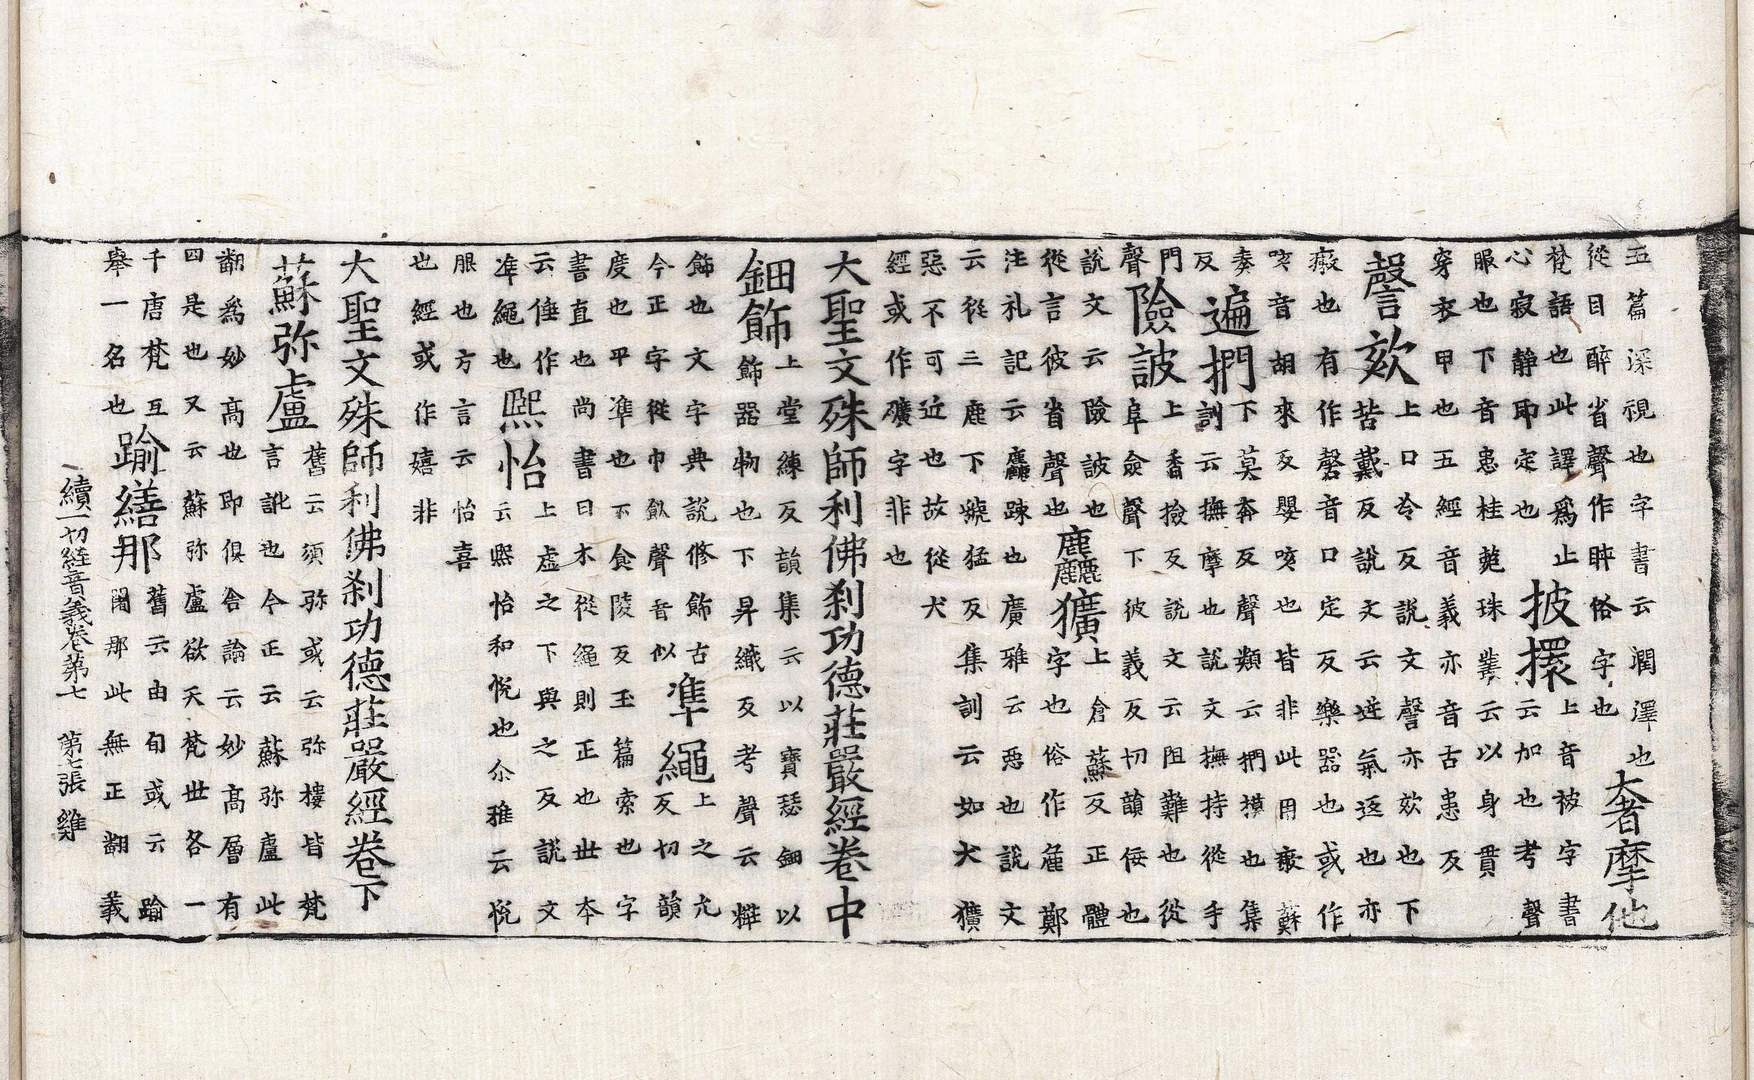 五篇深視也字書云潤澤也
從目醉省聲作睟俗字也
奢摩他
梵語也此譯爲止
心寂静即定也
披擐
上音被字書
云加也考聲
服也下音患桂菀珠藂云以身貫
穿衣甲也五經音義亦音古患反
謦欬
上口冷反說文謦亦欬也下
苦戴反說文云逆氣逆也亦
瘶也有作磬音口定反樂器也或作
咳音胡來反嬰咳也皆非此用瘶蘇
奏
反
遍捫
下莫奔反聲類云捫摸也集
訓云撫摩也說文撫持從手
門
聲
險詖
上香撿反說文云阻難也從
阜僉聲下彼義反切韻佞也
說文云險詖也
從言彼省聲也
麤獷
上倉蘇反正體
字也俗作麁鄭
注礼記云麤踈也廣雅云惡也說文
云從三鹿下虢猛反集訓云如犬獷
惡不可近也故從犬
經或作礦字非也
大聖文殊師利佛刹功德莊嚴經卷中
鈿飾
上堂練反韻集云以寶瑟鈿以
飾器物也下昇織反考聲云糚
飾也文字典說修飾古
今正字從巾飤聲音似
準繩
上之允
反切韻
度也平準也下食陵反玉篇索也字
書直也尚書曰木從繩則正也世本
云倕作
準繩也
熙怡
上虛之下與之反說文
云熙怡和悅也尒雅云悅
服也方言云怡喜
也經或作嬉非
大聖文殊師利佛刹功德莊嚴經卷下
蘇弥盧
舊云須弥或云弥樓皆梵
言訛也今正云蘇弥盧此
翻爲妙高也即俱舍論云妙高層有
四是也又云蘇弥盧欲天梵世各一
千唐梵互
舉一名也
踰繕那
舊云由旬或云踰
闍那此無正翻義
續一切経音義卷第七　第七張　雞